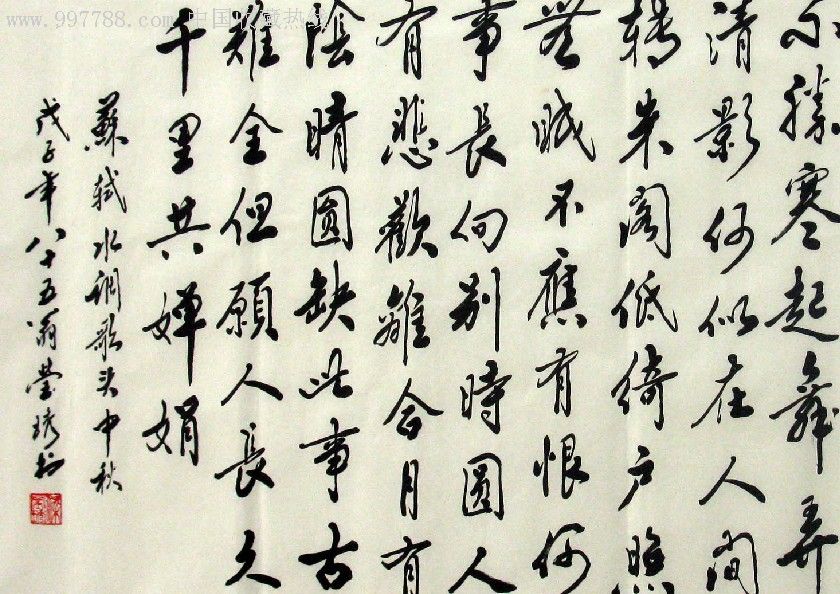 www.997788.com 中国收藏热线
不勝寒起舞弄
清影何似在人間
轉朱閣低綺戶照
無眠不應有恨何
事長向别時圓人
有悲歡離合月有
陰晴圓缺此事古
難全但願人長久
千里共嬋娟
蘇軾水調歌头中秋
戊子年八十五翁